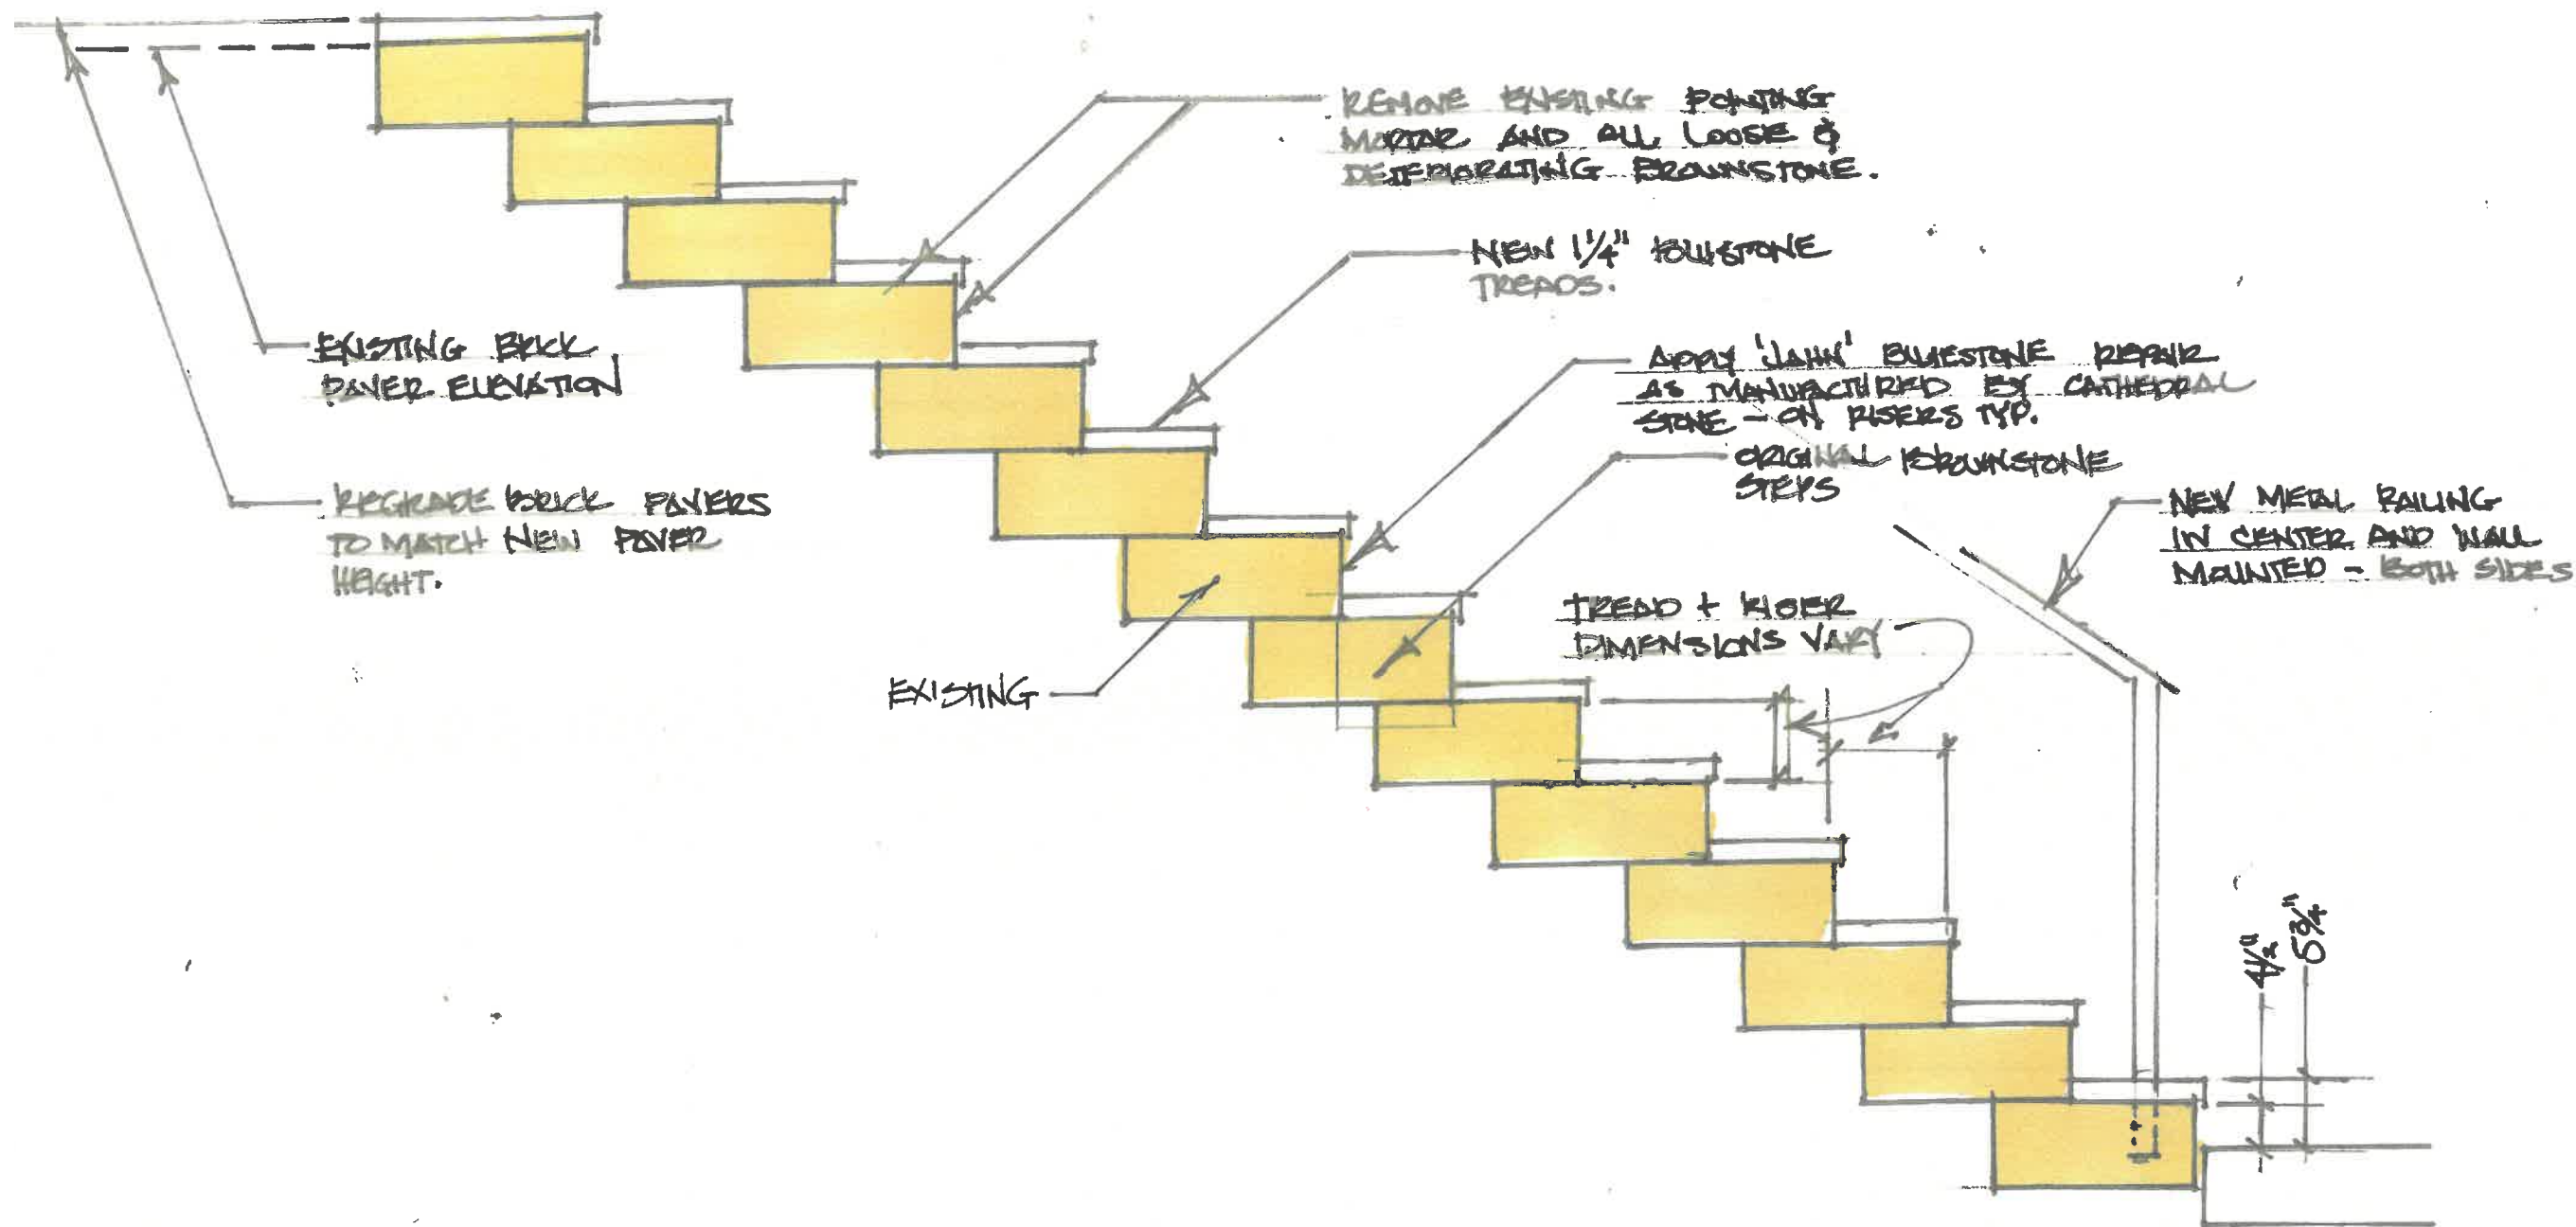 REMOVE EXISTING POINTING
MORTAR AND ALL LOOSE &
DETERIORATING BROWNSTONE.
NEW 1 1/4" BLUESTONE
TREADS.
EXISTING BRICK
PAVER ELEVATION
APPLY 'JAHN' BLUESTONE REPAIR
AS MANUFACTURED BY CATHEDRAL
STONE - ON RISERS TYP.
ORIGINAL BROWNSTONE
STEPS
REGRADE BRICK PAVERS
TO MATCH NEW PAVER
HEIGHT.
NEW METAL RAILING
IN CENTER AND WALL
MOUNTED - BOTH SIDES
TREAD + RISER
DIMENSIONS VARY
EXISTING
4 1/2"
5 3/4"